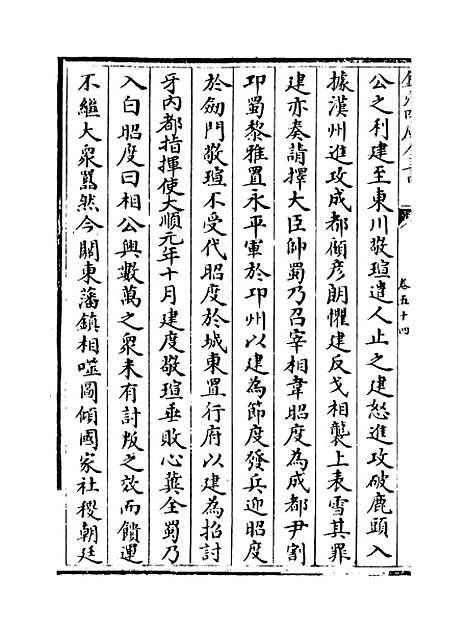 欽定四庫全書
卷五十四
公之利建至東川敬瑄遣人止之建怒進攻破鹿頭入
據漢州進攻成都顧彥朗懼建反戈相襲上表雪其罪
建亦奏請擇大臣帥蜀乃召宰相韋昭度為成都尹割
卭蜀黎雅置永平軍於卭州以建為節度發兵迎昭度
於劒門敬瑄不受代昭度於城東置行府以建為招討
牙內都指揮使大順元年十月建度敬瑄垂敗心冀全蜀乃
入白昭度曰相公興數萬之衆未有討叛之效而饋運
不繼大衆囂然今關東藩鎮相噬圖傾國家社稷朝廷